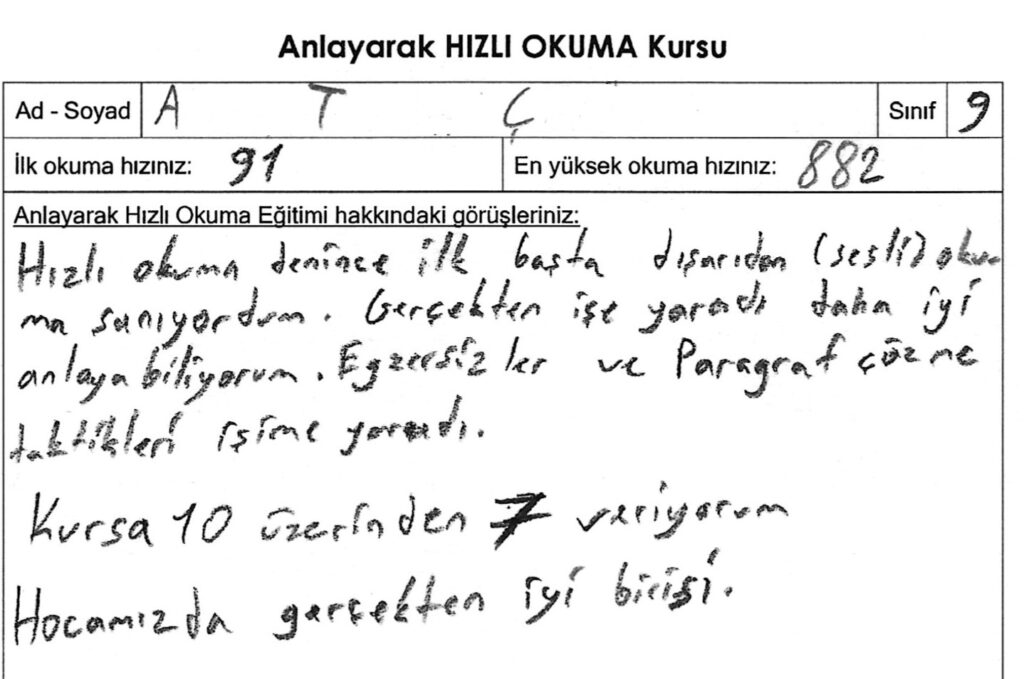 Anlayarak HIZLI OKUMA Kursu
Ad - Soyad A T Ç Sınıf 9
İlk okuma hızınız: 91 En yüksek okuma hızınız: 882
Anlayarak Hızlı Okuma Eğitimi hakkındaki görüşleriniz:
Hızlı okuma denince ilk başta dışarıdan (sesli) oku-
ma sanıyordum. Gerçekten işe yaradı daha iyi
anlaya biliyorum. Egzersizler ve Paragraf çözme
taktikleri işime yaradı.
Kursa 10 üzerinden 7 veriyorum
Hocamızda gerçekten iyi birisi.